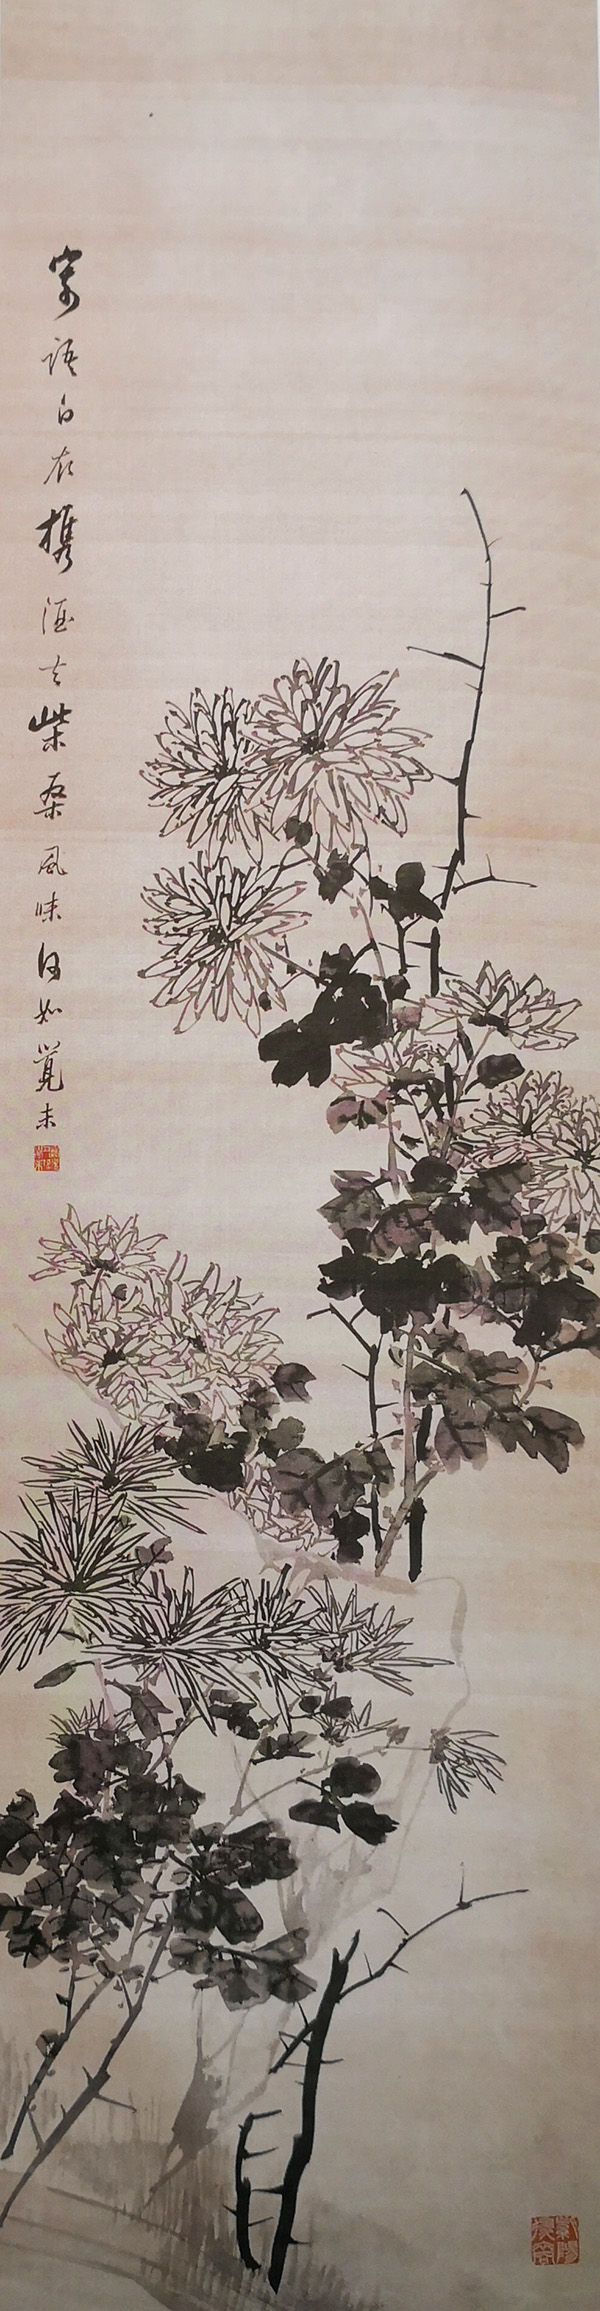 寄語白衣携酒去柴桑風味何如覺未